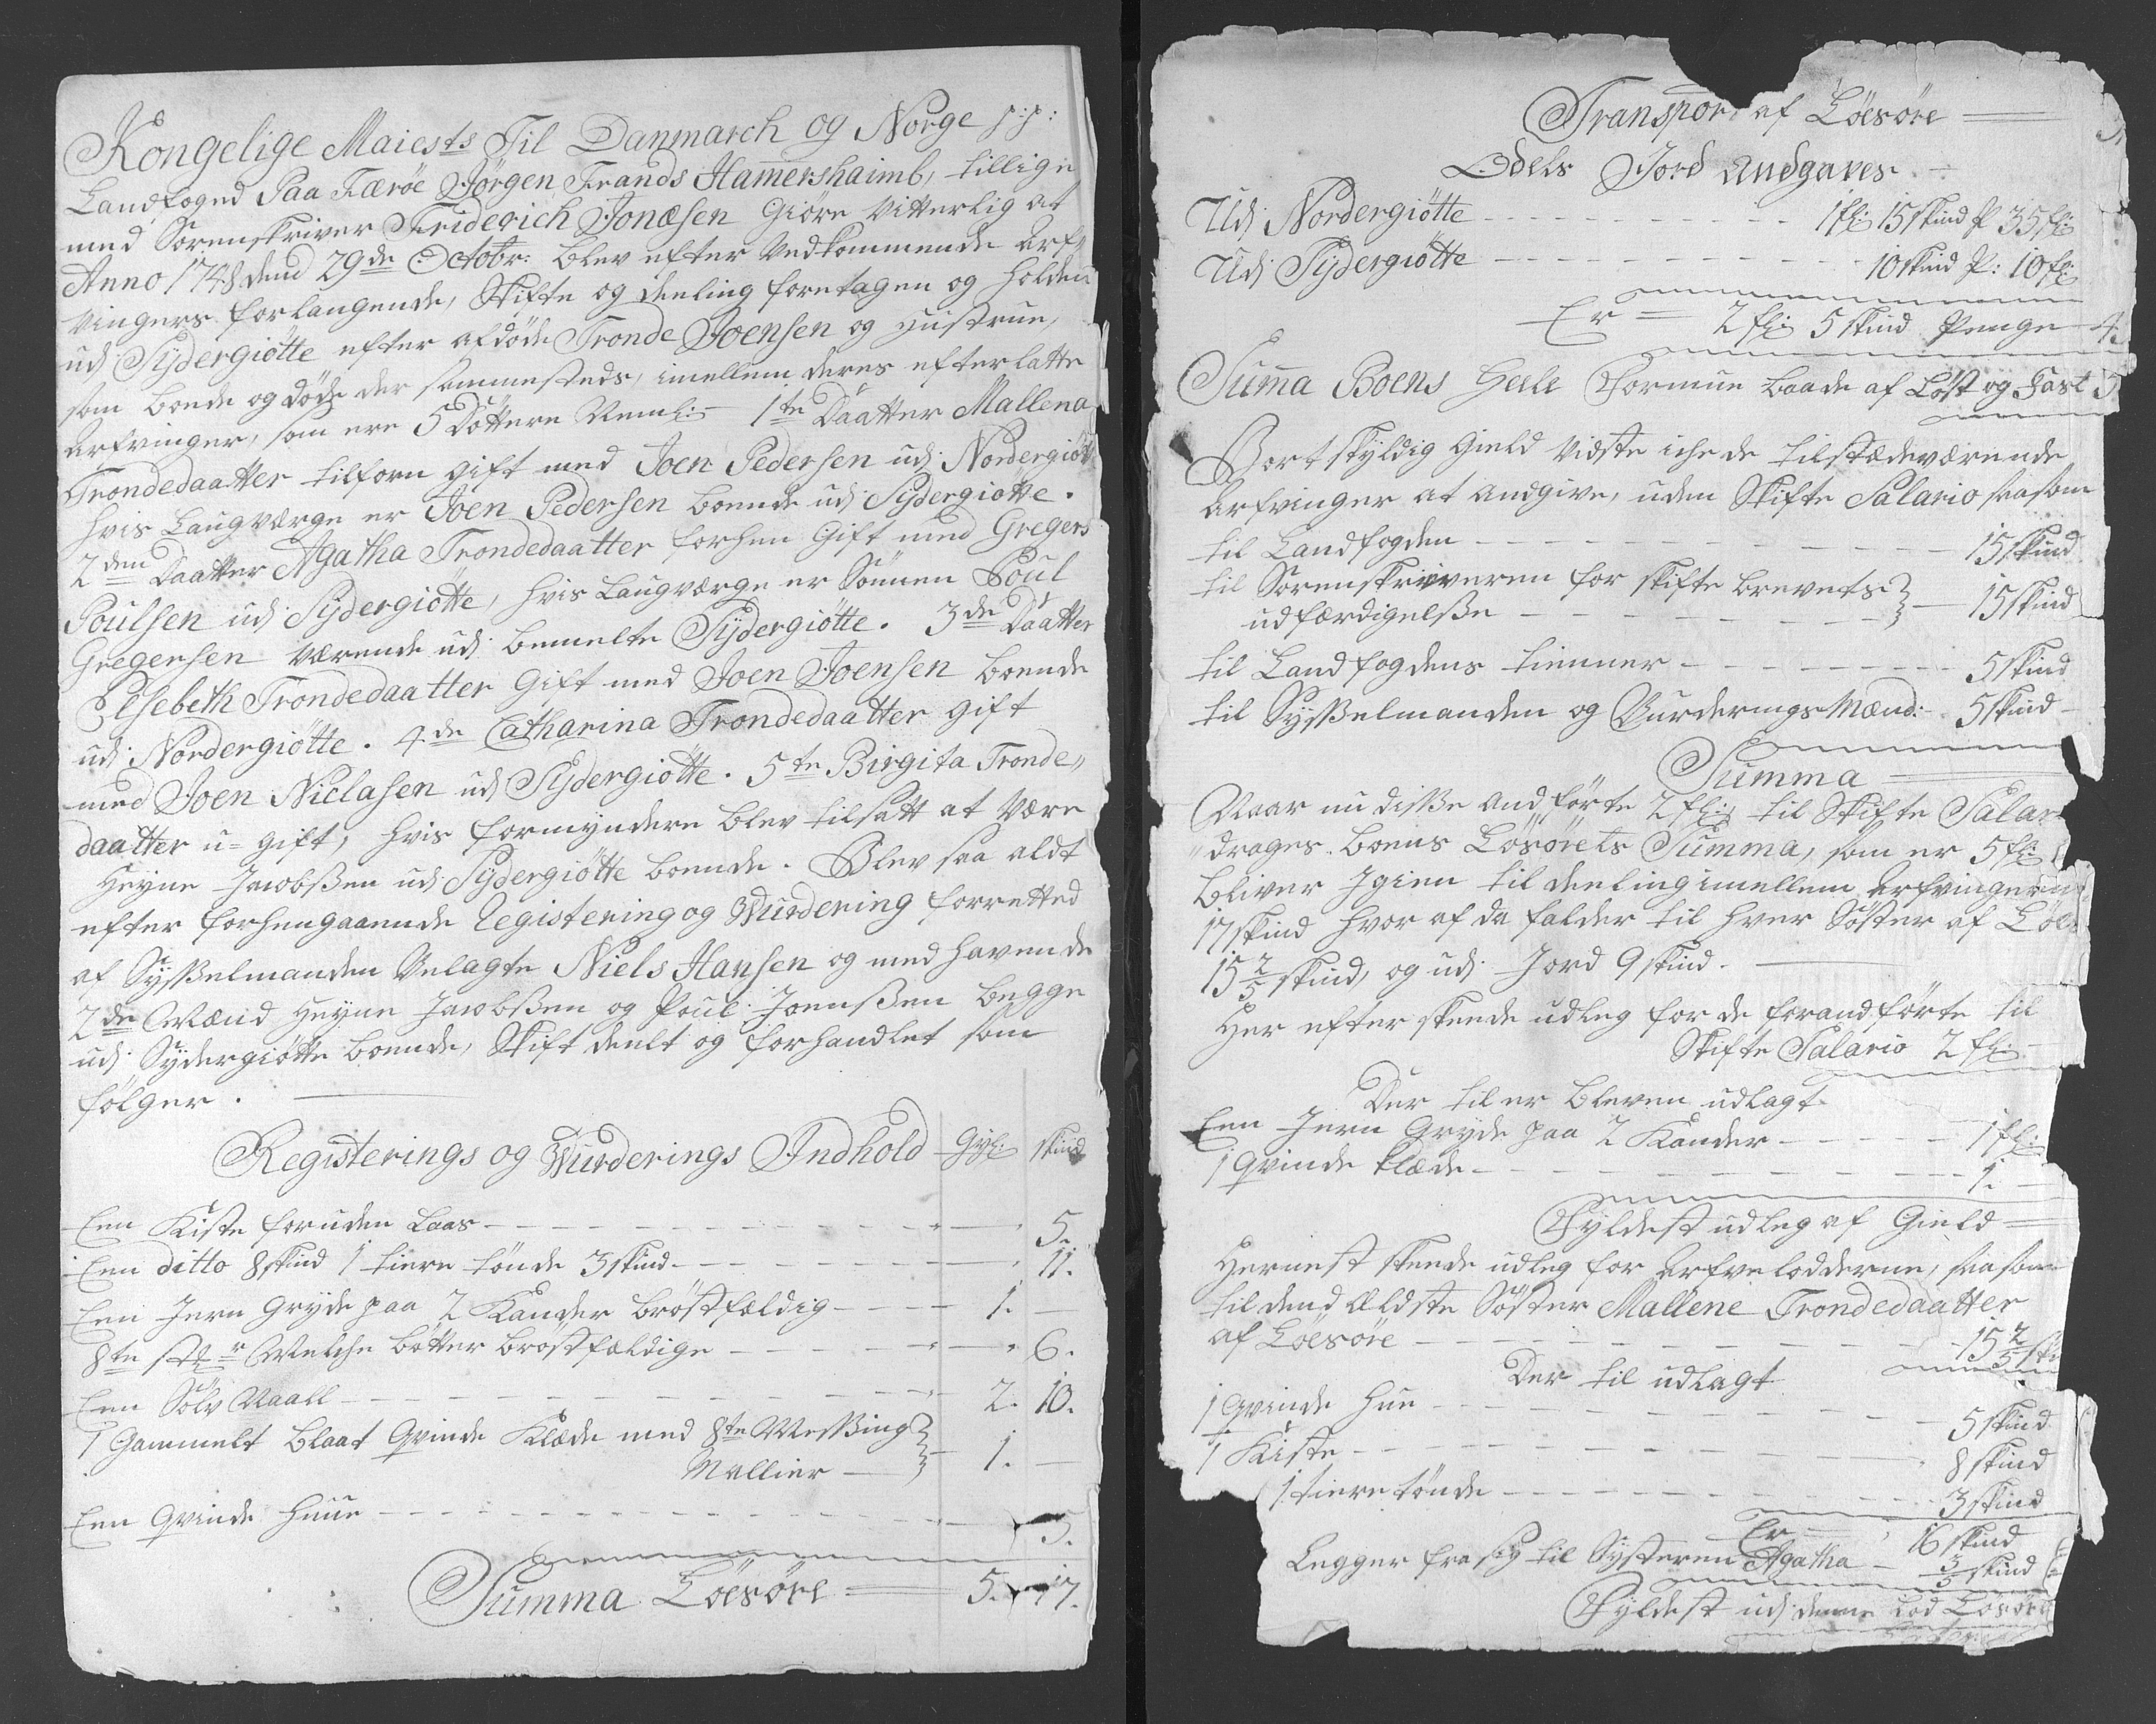 Kongelige Maiests Til Danmarch og Norge p:p:
Landfoged Paa Færöe Jörgen Frands Hammershaimb, tillige
med Sorenskriver Friderich Jonæsen Giöre Vitterlig at
Anno 1748 dend 29de Octobr: blev efter Vedkommende Arf,,
vingers forlangende, Skifte og deeling foretagen og holden
udj Sÿdergiötte efter afdöde Tronde Joensen og Hustrue,
som boede og döde der sammesteds, imellem deres efterlatte
Arfvinger, som ere 5 Döttere Neml: 1te Daatter Mallena
Trondedaatter tilforn gift med Joen Pedersen udj Nordergiöt
hvis Laugværge er Joen Pedersen boende udj Sÿdergiotte.
2den Daatter Agatha Trondedaatter forhen Gift med Gregers
Poulsen udj Sÿdergiötte, hvis Laugværge er Sönnen Poul
Gregersen værende udj bemelte Sÿdergiötte. 3de Daatter
Elsebeth Trondedaatter Gift med Joen Joensen boende
udj Nordergiötte. 4de Catharina Trondedaatter gift
med Joen Niclasen udj Sÿdergiötte. 5te Birgita Tronde,,
daatter u=gift, hvis formyndere blev tilsatt at være
Heyne Jacobßen udj Sÿdergiötte boende. Blev saa aldt
efter forhengaaende Registering og Wurdering forretted
af Sysselmanden Velagte Niels Hansen og med havende
2de Mænd Heyne Jacobßen og Poul Joenßen begge
udj Sydergiötte boende, Skift deelt og forhandlet som
fölger.
Registerings og Wurderings Indhold Gyl: skind
Een Kiste foruden Laas 5.
Een ditto 8 skind 1 tiere tönde 3 skind 11.
Een Jern Gryde paa 2 Kander bröstfældig 1.
8te stkr Melche bötter bröstfældige 6.
Een Sölv Naall 2. 10.
1 Gammelt blaat Qvinde Klæde med 8te Messing
Mallier 1.
Een Qvinde Huue 5.
Summa Löesöre 5. 17.
Transpor af Löesöre
Odels Jord Andgaves
Udj Nordergiötte 1 fl: 15 skind P 35 fl:
Udj Sÿdergiötte 10 skind P: 10 fl:
Er = 2 fl: 5 skind Penge 4.
Summa Boens Heele Formue baade af Löst og Fast 5
Bortskyldig Gield vidste iche de tilstædeværende
Arfvinger at andgive, uden Skifte Salario saasom
til Landfogden 15 skind
til Sorenskriveren for skifte brevets
udfærdigelße 15 skind
til Landfogdens tienner 5 skind
til Sysselmanden og Vurderings Mænd: 5 skind
Summa
Naar nu diße andförte 2 fl: til Skifte Salar
drages boens Lösörets Summa, som er 5 fl:
bliver Igien til deeling imellem Arfvingerne
17 skind hvor af da falder til hver Söster af Löes
15 2/5 skind, og udj Jord 9 skind.
Her efter skeede udleg for de forandförte til
Skifte Salario 2 fl:
Der til er bleven udlagt
Een Jern Gryde paa 2 Kander 1 fl:
1 Qvinde klæde 1.
Fyldest udleg af Gield
Hernest skeede udleg for Arfvelodderne, saasom
til dend Ældste Söster Mallene Trondedaatter
af Löesöre 15 2/5 ski
Der til udlagt
1 Qvinde Hue 5 skind
1 Kiste 8 skind
1 tiere tönde 3 skind
Er 16 skind
Legger fra sig til Systeren Agatha 3/5 skind
Fyldest udj denne Lod Lösöre